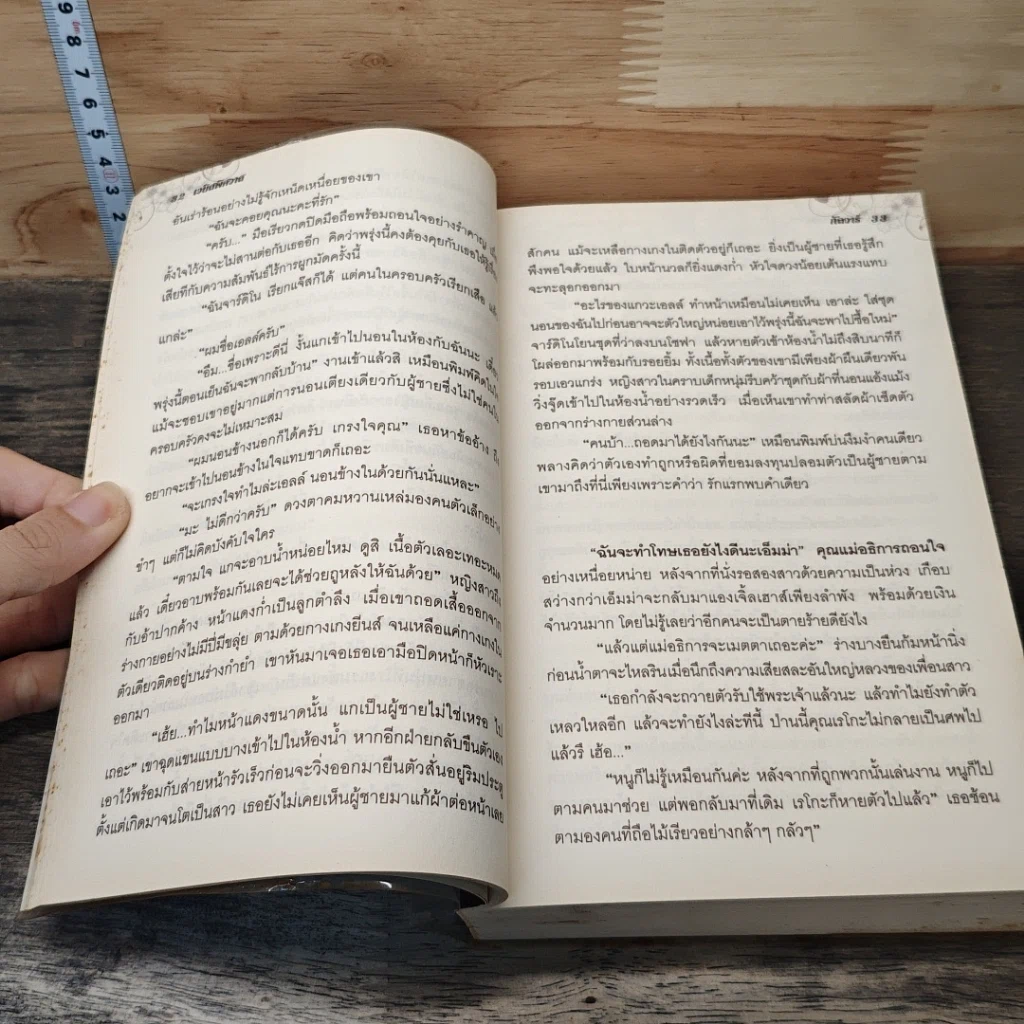 9
8
7
6
5
4
3
2
32
อันเร่าร้อนอย่างไม่รู้จักเหน็ดเหนื่อยของเขา
"ฉันจะคอยคุณนะคะที่รัก"
"ครับ..." มือเรียวกดปิดมือถือพร้อมถอนใจอย่างรำคาญ
ตั้งใจไว้ว่าจะไม่สานต่อกับเธออีก คิดว่าพรุ่งนี้คงต้องคุยกับเธอให้รู้เรื่อง
เสียทีกับความสัมพันธ์ไร้การผูกมัดครั้งนี้
"ฉันจาร์ดิโน เรียกแจ๊สก็ได้ แต่คนในครอบครัวเรียกเสือ
แกล่ะ"
"ผมชื่อเอลล์ครับ"
"อืม...ชื่อเพราะดีนี่ งั้นแกเข้าไปนอนในห้องกับฉันนะ
พรุ่งนี้ตอนเย็นฉันจะพากลับบ้าน" งานเข้าแล้วสิ เหมือนพิมพ์คิดในใจ
แม้จะชอบเขาอยู่มากแต่การนอนเตียงเดียวกับผู้ชายซึ่งไม่ใช่คนใน
ครอบครัวคงจะไม่เหมาะสม
"ผมนอนข้างนอกก็ได้ครับ เกรงใจคุณ" เธอหาข้ออ้าง ถึง
อยากจะเข้าไปนอนข้างในใจแทบขาดก็เถอะ
"จะเกรงใจทำไมล่ะเอลล์ นอนข้างในด้วยกันนั่นแหละ"
"มะ ไม่ดีกว่าครับ" ดวงตาคมหวานเหล่มองคนตัวเล็กอย่าง
ขำๆ แต่ก็ไม่คิดบังคับใจใคร
"ตามใจ แกจะอาบน้ำหน่อยไหม ดูสิ เนื้อตัวเลอะเทอะหมด
แล้ว เดี๋ยวอาบพร้อมกันเลยจะได้ช่วยถูหลังให้ฉันด้วย" หญิงสาวถึง
กับอ้าปากค้าง หน้าแดงก่ำเป็นลูกตำลึง เมื่อเขาถอดเสื้อออกจาก
ร่างกายอย่างไม่มีปี่มีขลุ่ย ตามด้วยกางเกงยีนส์ จนเหลือแค่กางเกงใน
ตัวเดียวติดอยู่บนร่างกำยำ เขาหันมาเจอเธอเอามือปิดหน้าก็หัวเราะ
ออกมา
"เฮ้ย...ทำไมหน้าแดงขนาดนั้น แกเป็นผู้ชายไม่ใช่เหรอ ไป
เถอะ" เขาฉุดแขนแบบบางเข้าไปในห้องน้ำ หากอีกฝ่ายกลับขืนตัวเอง
เอาไว้พร้อมกับส่ายหน้ารัวเร็วก่อนจะวิ่งออกมายืนตัวสั่นอยู่ริมประตู
ตั้งแต่เกิดมาจนโตเป็นสาว เธอยังไม่เคยเห็นผู้ชายมาแก้ผ้าต่อหน้าเลย
กันวารี 33
สักคน แม้จะเหลือกางเกงในติดตัวอยู่ก็เถอะ ยิ่งเป็นผู้ชายที่เธอรู้สึก
พึงพอใจด้วยแล้ว ใบหน้านวลก็ยิ่งแดงก่ำ หัวใจดวงน้อยเต้นแรงแทบ
จะทะลุออกออกมา
"อะไรของแกวะเอลล์ ทำหน้าเหมือนไม่เคยเห็น เอาล่ะ ใส่ชุด
นอนของฉันไปก่อนอาจจะตัวใหญ่หน่อยเอาไว้พรุ่งนี้ฉันจะพาไปซื้อใหม่"
จาร์ดิโนโยนชุดที่ว่าลงบนโซฟา แล้วหายตัวเข้าห้องน้ำไม่ถึงสิบนาทีก็
โผล่ออกมาพร้อมกับรอยยิ้ม ทั้งเนื้อทั้งตัวของเขามีเพียงผ้าผืนเดียวพัน
รอบเอวแกร่ง หญิงสาวในคราบเด็กหนุ่มรีบคว้าชุดกับผ้าที่นอนแอ้งแม้ง
วิ่งจู๊ดเข้าไปในห้องน้ำอย่างรวดเร็ว เมื่อเห็นเขาทำท่าสลัดผ้าเช็ดตัว
ออกจากร่างกายส่วนล่าง
"คนบ้า...ถอดมาได้ยังไงกันนะ" เหมือนพิมพ์บ่นงึมงำคนเดียว
พลางคิดว่าตัวเองทำถูกหรือผิดที่ยอมลงทุนปลอมตัวเป็นผู้ชายตาม
เขามาถึงที่นี่เพียงเพราะคำว่า รักแรกพบคำเดียว
"ฉันจะทำโทษเธอยังไงดีนะเอ็มม่า" คุณแม่อธิการถอนใจ
อย่างเหนื่อยหน่าย หลังจากที่นั่งรอสองสาวด้วยความเป็นห่วง เกือบ
สว่างกว่าเอ็มม่าจะกลับมาแองเจิ้ลเฮาส์เพียงลำพัง พร้อมด้วยเงิน
จำนวนมาก โดยไม่รู้เลยว่าอีกคนจะเป็นตายร้ายดียังไง
"แล้วแต่แม่อธิการจะเมตตาเถอะค่ะ" ร่างบางยืนก้มหน้านิ่ง
ก่อนน้ำตาจะไหลรินเมื่อนึกถึงความเสียสละอันใหญ่หลวงของเพื่อนสาว
"เธอกำลังจะถวายตัวรับใช้พระเจ้าแล้วนะ แล้วทำไมยังทำตัว
เหลวไหลอีก แล้วจะทำยังไงล่ะทีนี้ ป่านนี้คุณเรโกะไม่กลายเป็นศพไป
แล้วรึ เฮ้อ..."
"หนูก็ไม่รู้เหมือนกันค่ะ หลังจากที่ถูกพวกนั้นเล่นงาน หนูก็ไป
ตามคนมาช่วย แต่พอกลับมาที่เดิม เรโกะก็หายตัวไปแล้ว" เธอช้อน
ตามองคนที่ถือไม้เรียวอย่างกล้าๆ กลัวๆ"